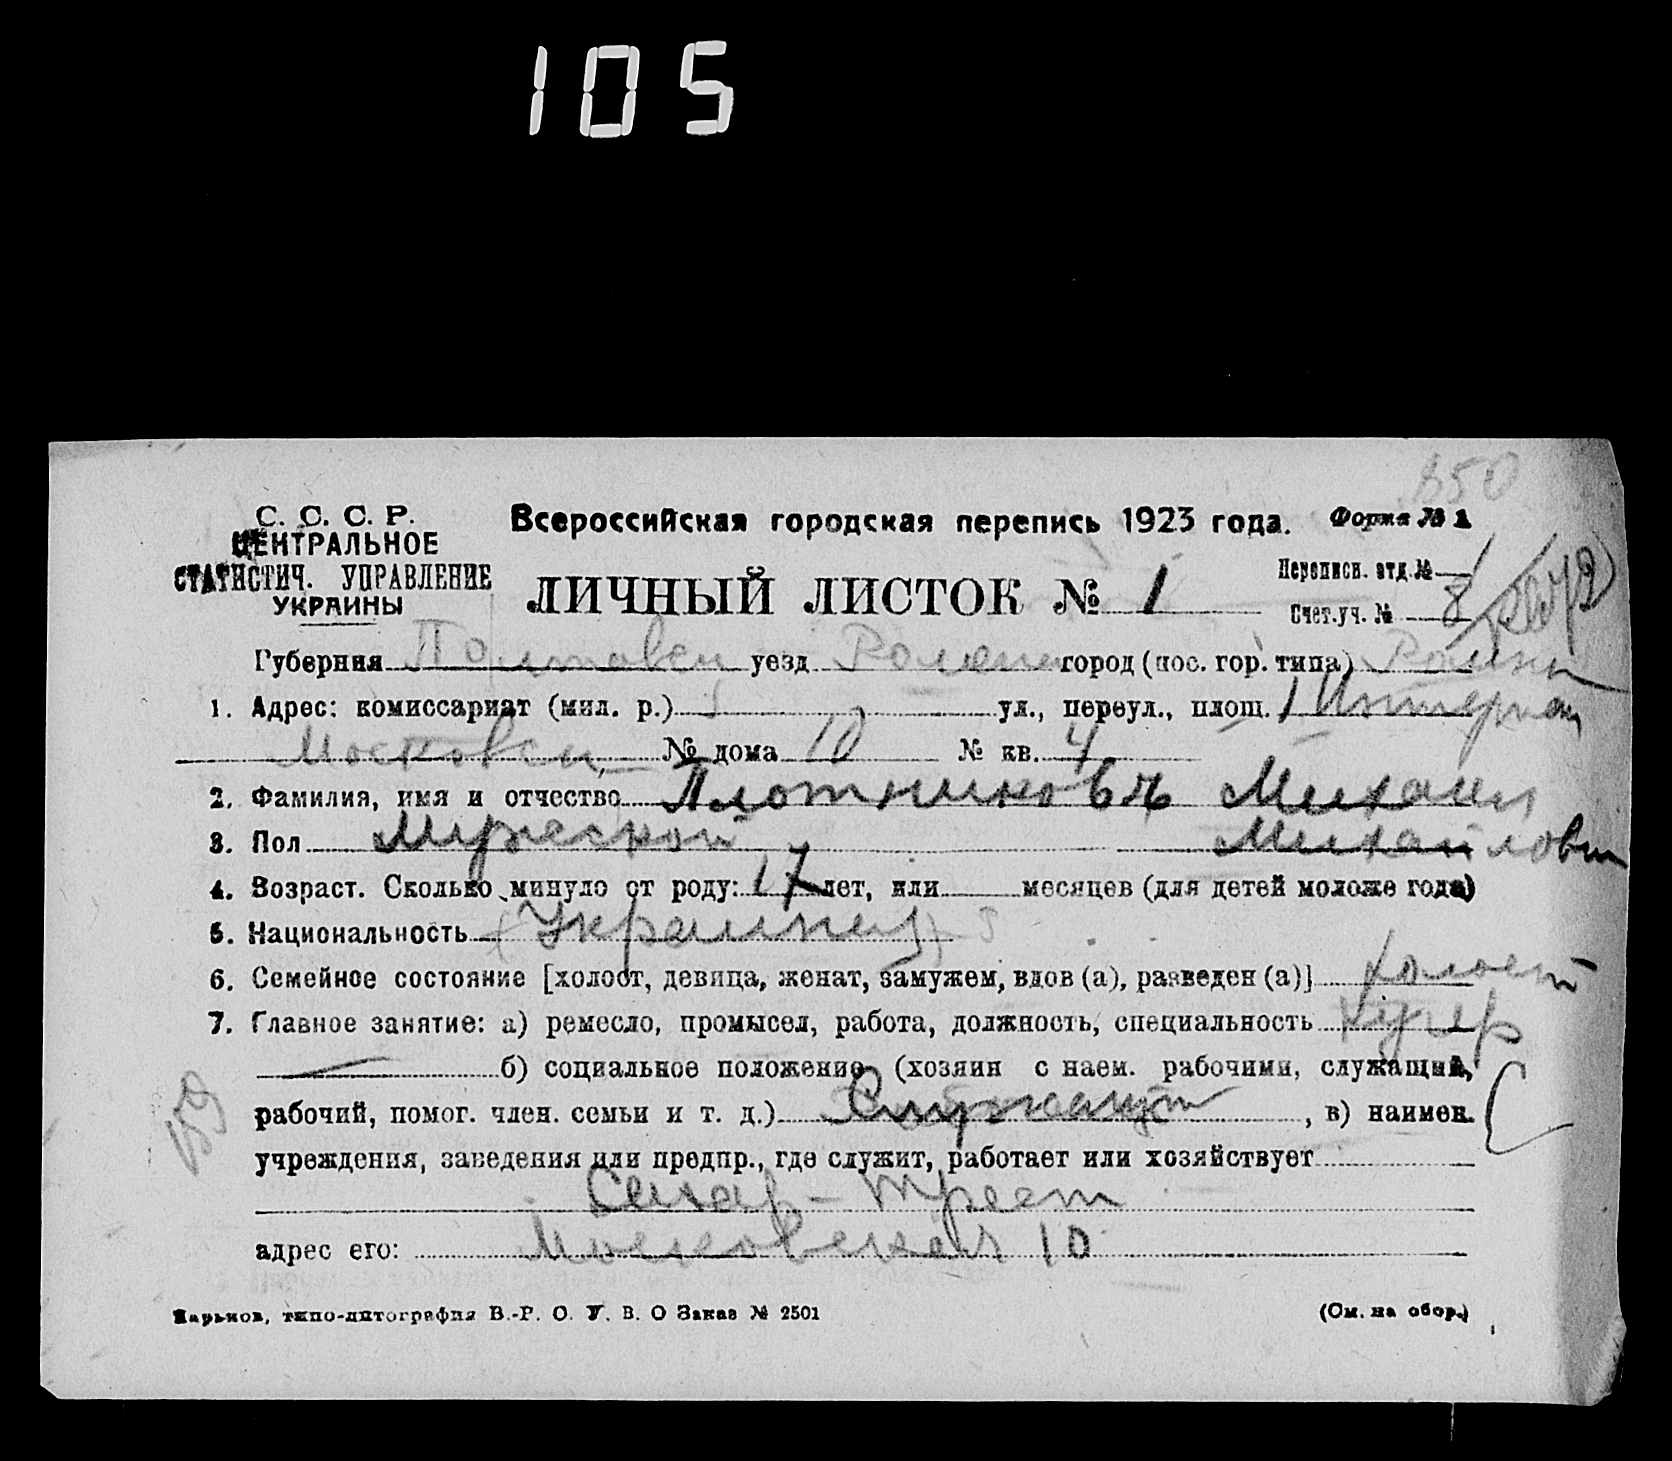 105
850
С. С. С. Р.
ЦЕНТРАЛЬНОЕ
СТАТИСТИЧ. УПРАВЛЕНИЕ
УКРАИНЫ
Всероссийская городская перепись 1923 года. Форма № 1
ЛИЧНЫЙ ЛИСТОК № 1
Переписн. отд. № 1
Счет. уч. № 8
Губерния Полтавск уезд Роменс город (пос. гор. типа) Ромны
1. Адрес: комиссариат (мил. р.) ул., переул., площ. 1 Интернац
Московск № дома 10 № кв. 4
2. Фамилия, имя и отчество Плотниковъ Михаил
3. Пол Мужеской Михайлович
4. Возраст. Сколько минуло от роду: 17 лет, или месяцев (для детей моложе года)
5. Национальность Украинец
6. Семейное состояние [холост, девица, женат, замужем, вдов (а), разведен (а)] холост
7. Главное занятие: а) ремесло, промысел, работа, должность, специальность Кучер
б) социальное положение (хозяин с наем. рабочими, служащий,
рабочий, помог. член. семьи и т. д.) , в) наимен.
учреждения, заведения или предпр., где служит, работает или хозяйствует
Сахар-трест
адрес его: Московская 10
Харьков, типо-литография В.-Р. О. У. В. О Заказ № 2501 (См. на обор.)